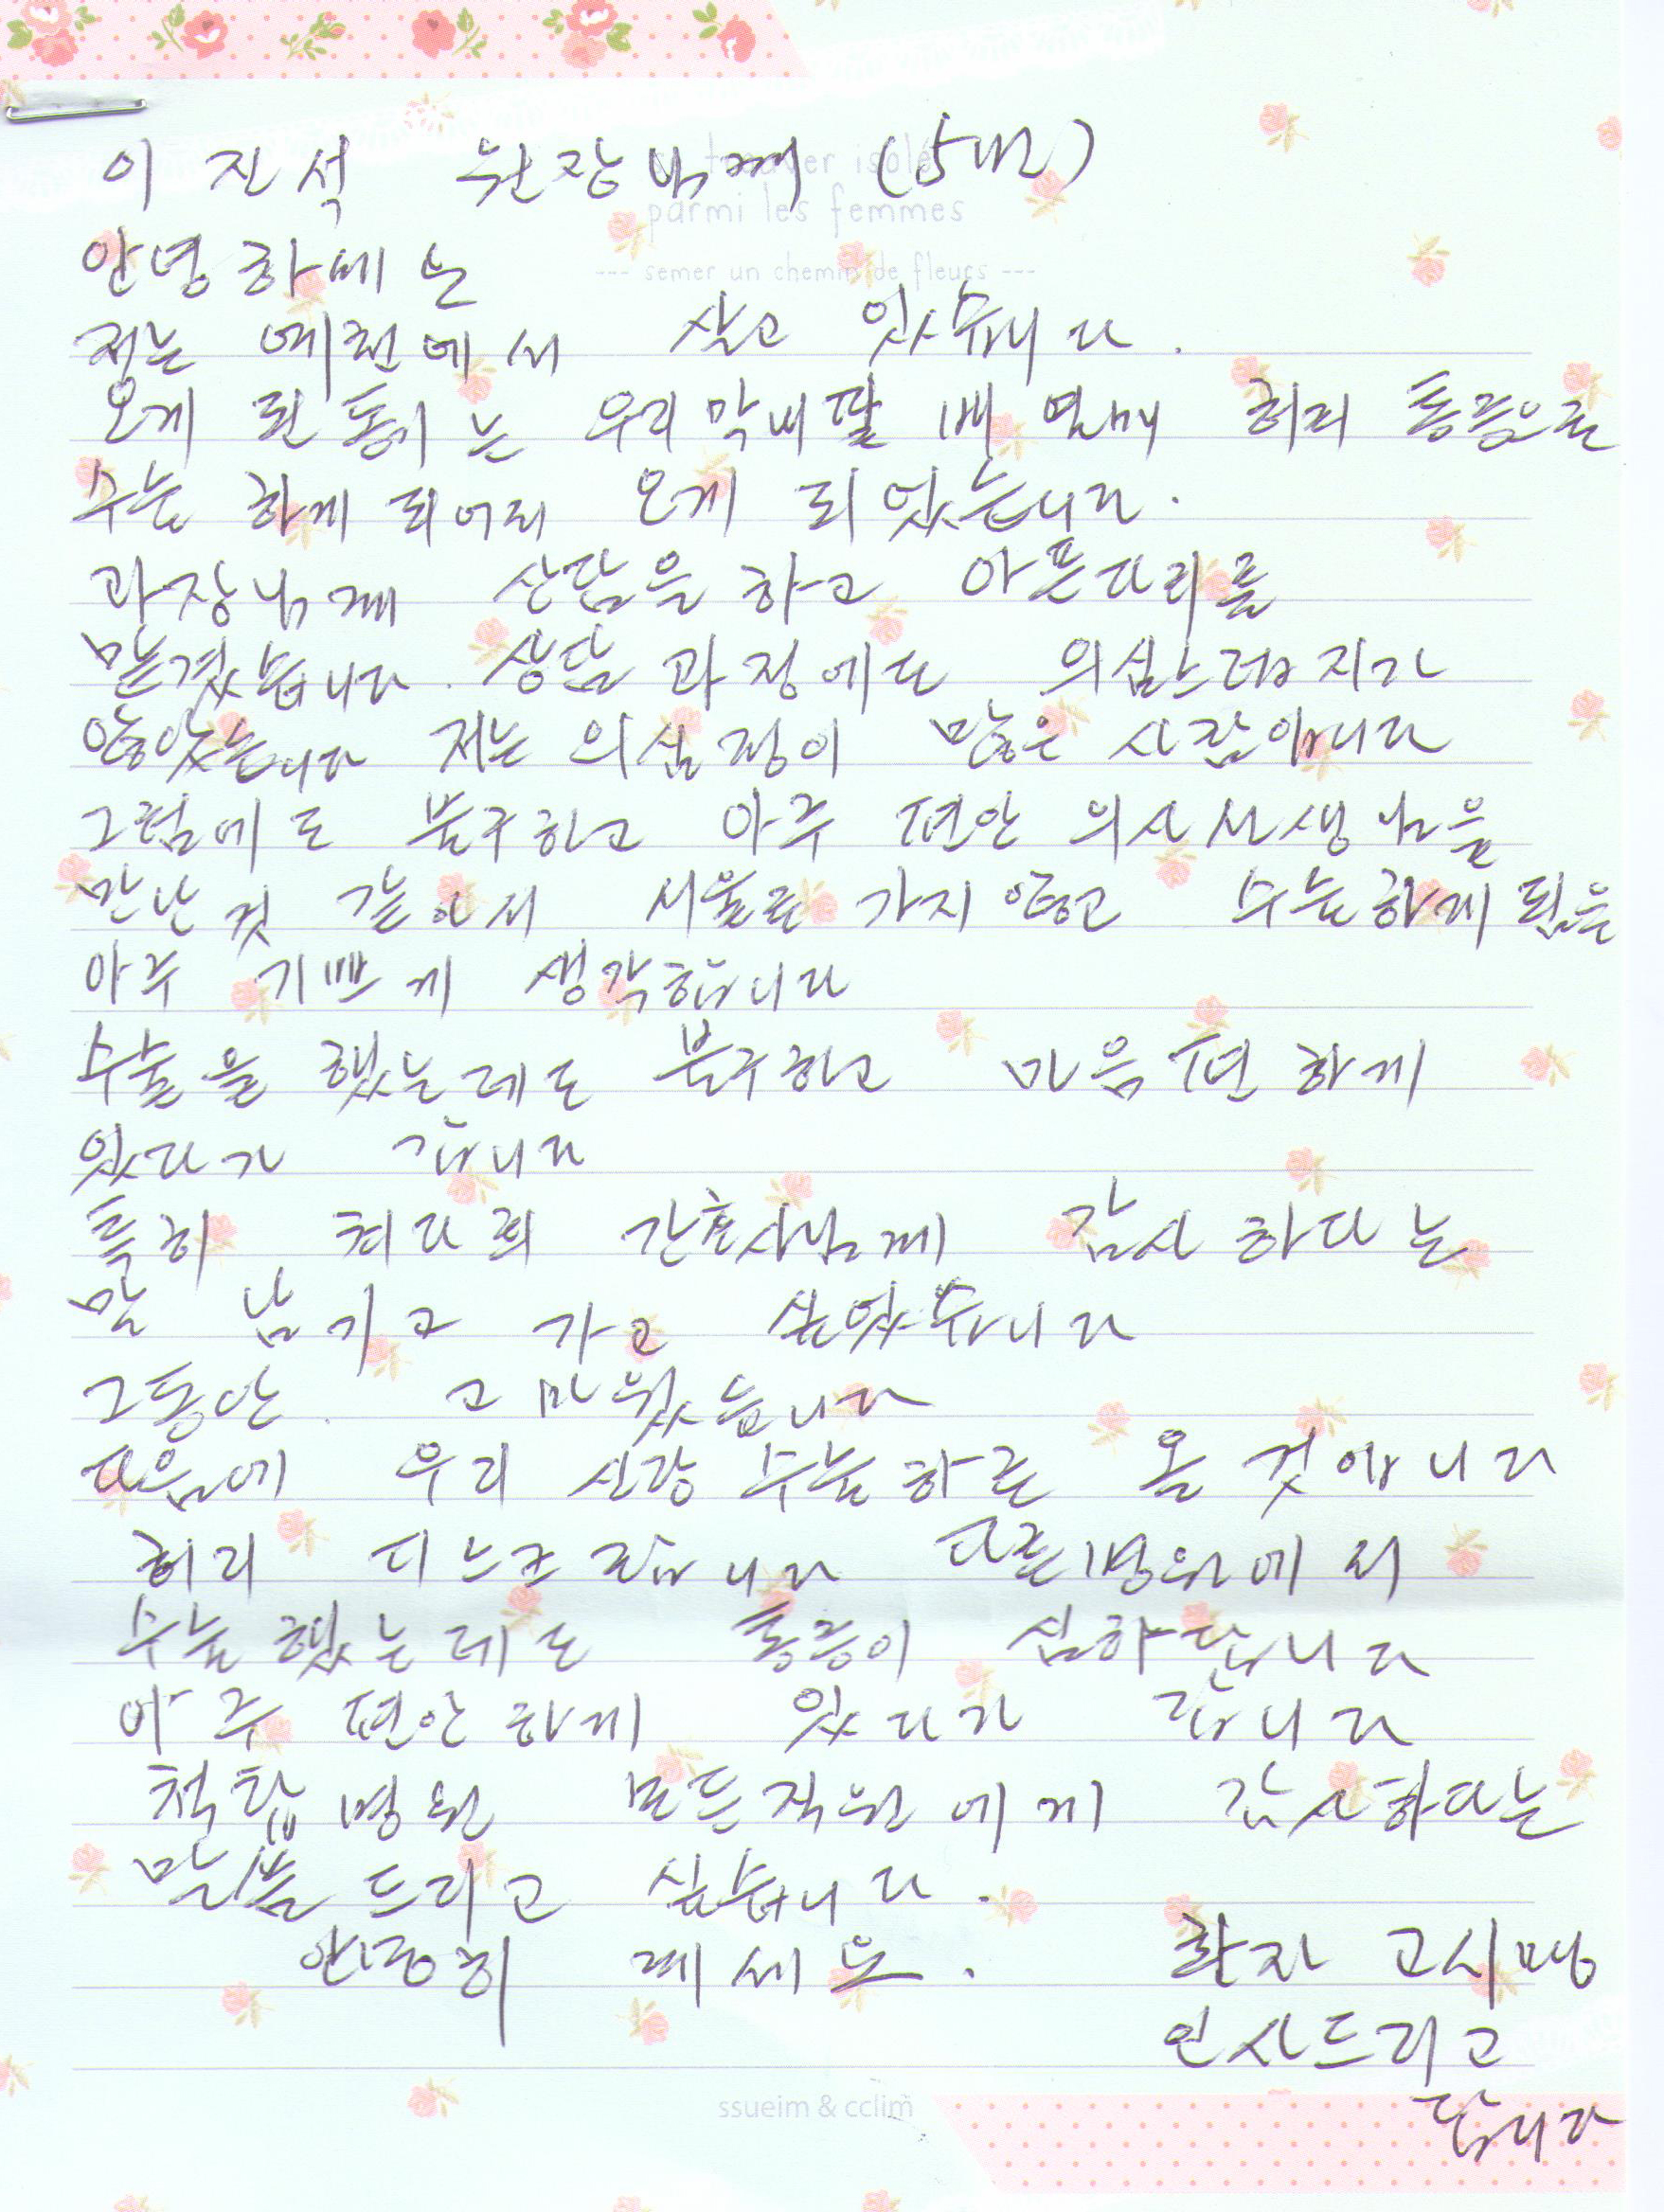 이 진석 원장님께 (5번)
se trouver isolé
parmi les femmes
--- semer un chemin de fleurs ---
안녕하세요
저는 예천에서 살고 있습니다.
오게 된 동기는 우리 막내딸 허리 통증으로
수술 하게 되어서 오게 되었습니다.
과장님께 상담을 하고 아픈다리를
맡겼습니다. 상담 과정에도 의심스러지가
않았습니다 저는 의심정이 많은 사람입니다
그럼에도 불구하고 아주 편안 의사선생님을
만난것 같아서 서울로 가지않고 수술하게 됨을
아주 기쁘게 생각합니다
수술을 했는데도 불구하고 마음편하게
있다가 갑니다
특히 최다희 간호사님께 감사하다는
말 남기고 가고 싶었습니다
그동안. 고마웠습니다
다음에 우리 신랑 수술하로 올것입니다
허리 디스크랍니다 다른병원에서
수술했는데도 통증이 심하답니다
아주 편안하게 있다가 갑니다
척탑병원 모든직원에게 감사하다는
말씀드리고 싶습니다.
안녕히 계세요. 환자 고시맹
인사드리고
갑니다
ssueim & cclim